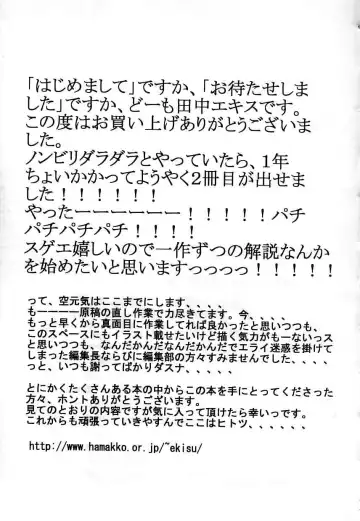 「はじめまして」ですか、「お待たせしま
した」ですか、どーも田中エキスです。
この度はお買い上げありがとうございま
した。
ノンビリダラダラとやっていたら、１年
ちょいかかってようやく２冊目が出せま
した！！！！！！
やったーーーーーー！！！！！パチ
パチパチパチ！！！！
スゲエ嬉しいので一作ずつの解説なんか
を始めたいと思いますっっっっ！！！！！
って、空元気はここまでにします、、、、
も－－－－－原稿の直し作業で力尽きてます。今、、、、
もっと早くから真面目に作業してれば良かったと思いつつも、
このスペースにもイラスト載せたいけど描く気力がもーないっス
と思いつつも、なんだかんだなんだかんだでエライ迷惑を掛けて
しまった編集長ならびに編集部の方々すみませんでした、、、、
っと、いつも謝ってばかりダスナ、、、、
とにかくたくさんある本の中からこの本を手にとってくださった
方々、ホントありがとうございます。
見てのとおりの内容ですが気に入って頂けたら幸いっです。
これからも頑張っていきやすんでここはヒトツ、、、、、
http://www.hamakko.or.jp/~ekisu/